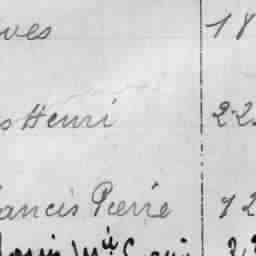 ves 18
s Henri 22
ancis Pierre 12